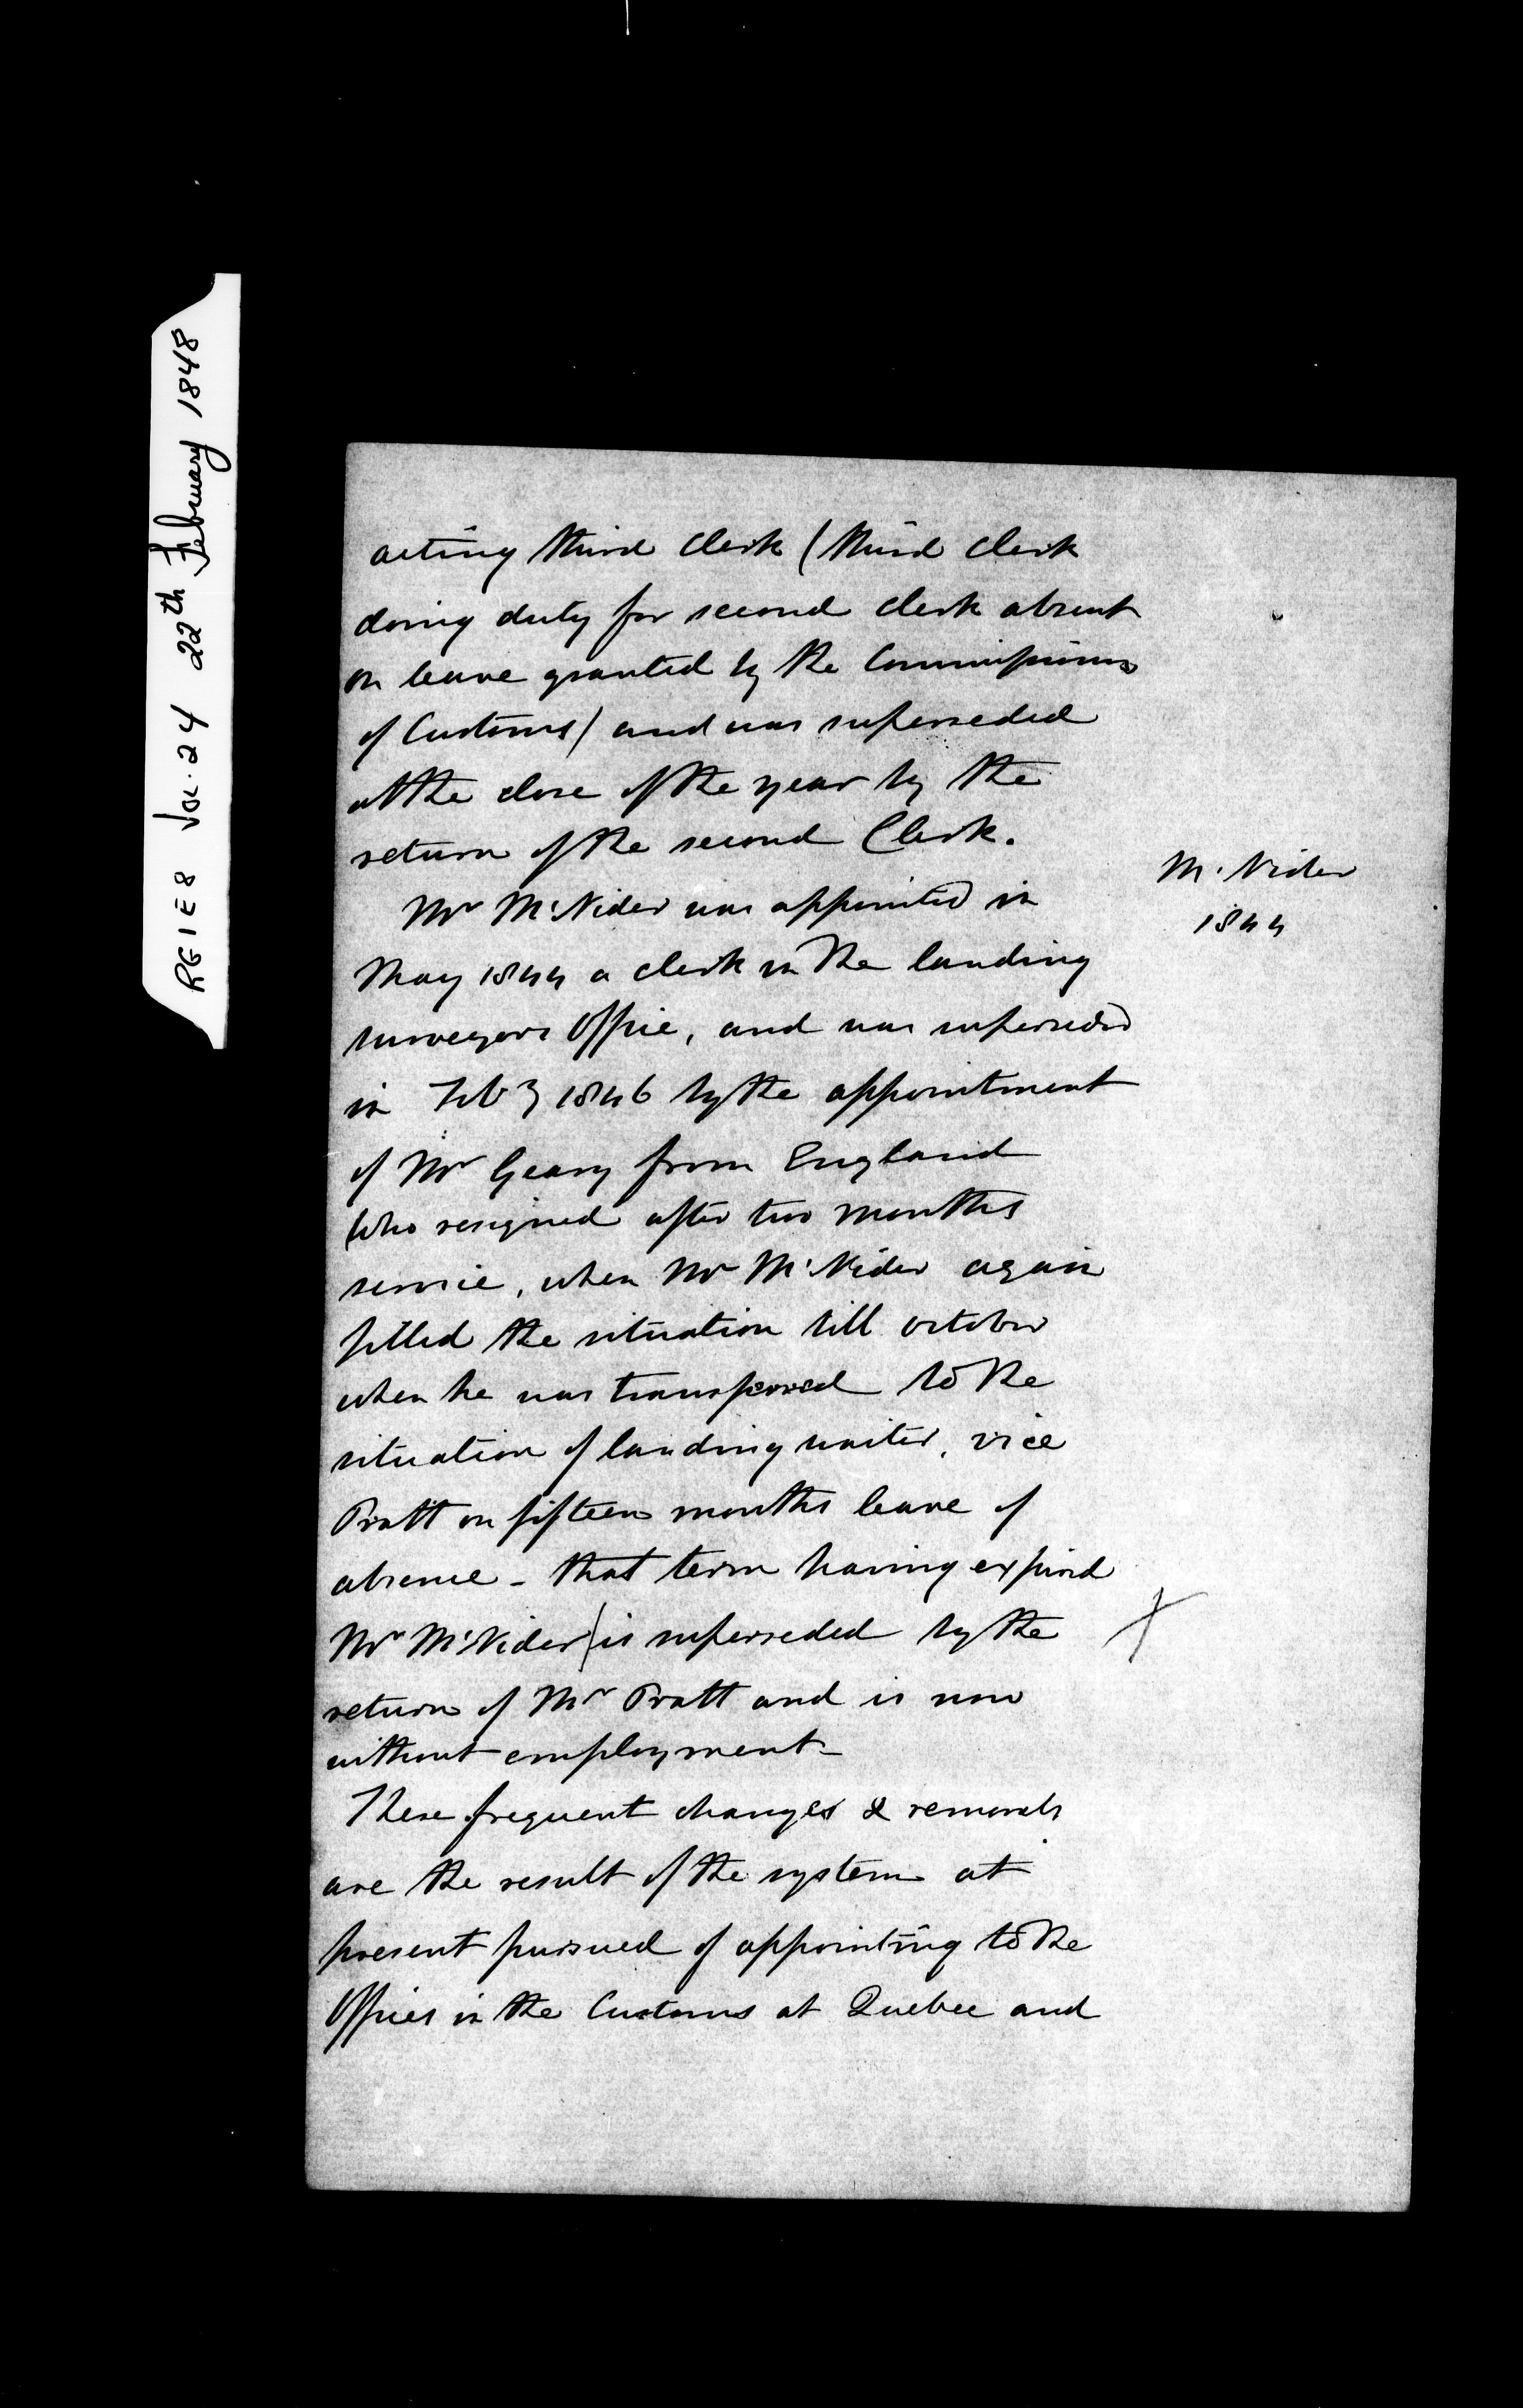 RG1E8 Vol. 24 22th February 1848
acting third Clerk (third clerk
doing duty for second clerk absent
on leave granted by the Commissioners
of Customs) and was superseded
at the close of the year by the
return of the second Clerk.
Mr McNider was appointed in
May 1844 a clerk in the landing
surveyors Office, and was superseded
in Feby 1846 by the appointment
of Mr Geary from England
(who resigned after two months
service, when Mr McNider again
filled the situation till october
when he was transferred to the
situation of landing waiter, vice
Pratt on fifteen months leave of
absence - that term having expired
Mr McNider) is superseded by the
return of Mr Pratt and is now
without employment -
These frequent changes & removals
are the result of the system at
present pursued of appointing to the
Offices in the Customs at Quebec and
McNider
1844
X